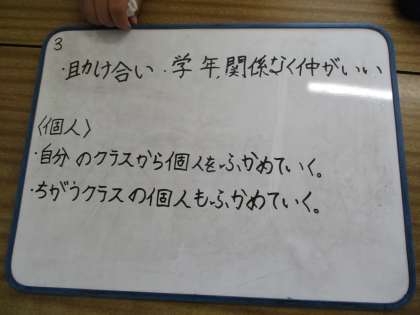 3
・助け合い ・学年、関係なく仲がいい
〈個人〉
・自分のクラスから個人をふかめていく。
・ちがうクラスの個人もふかめていく。